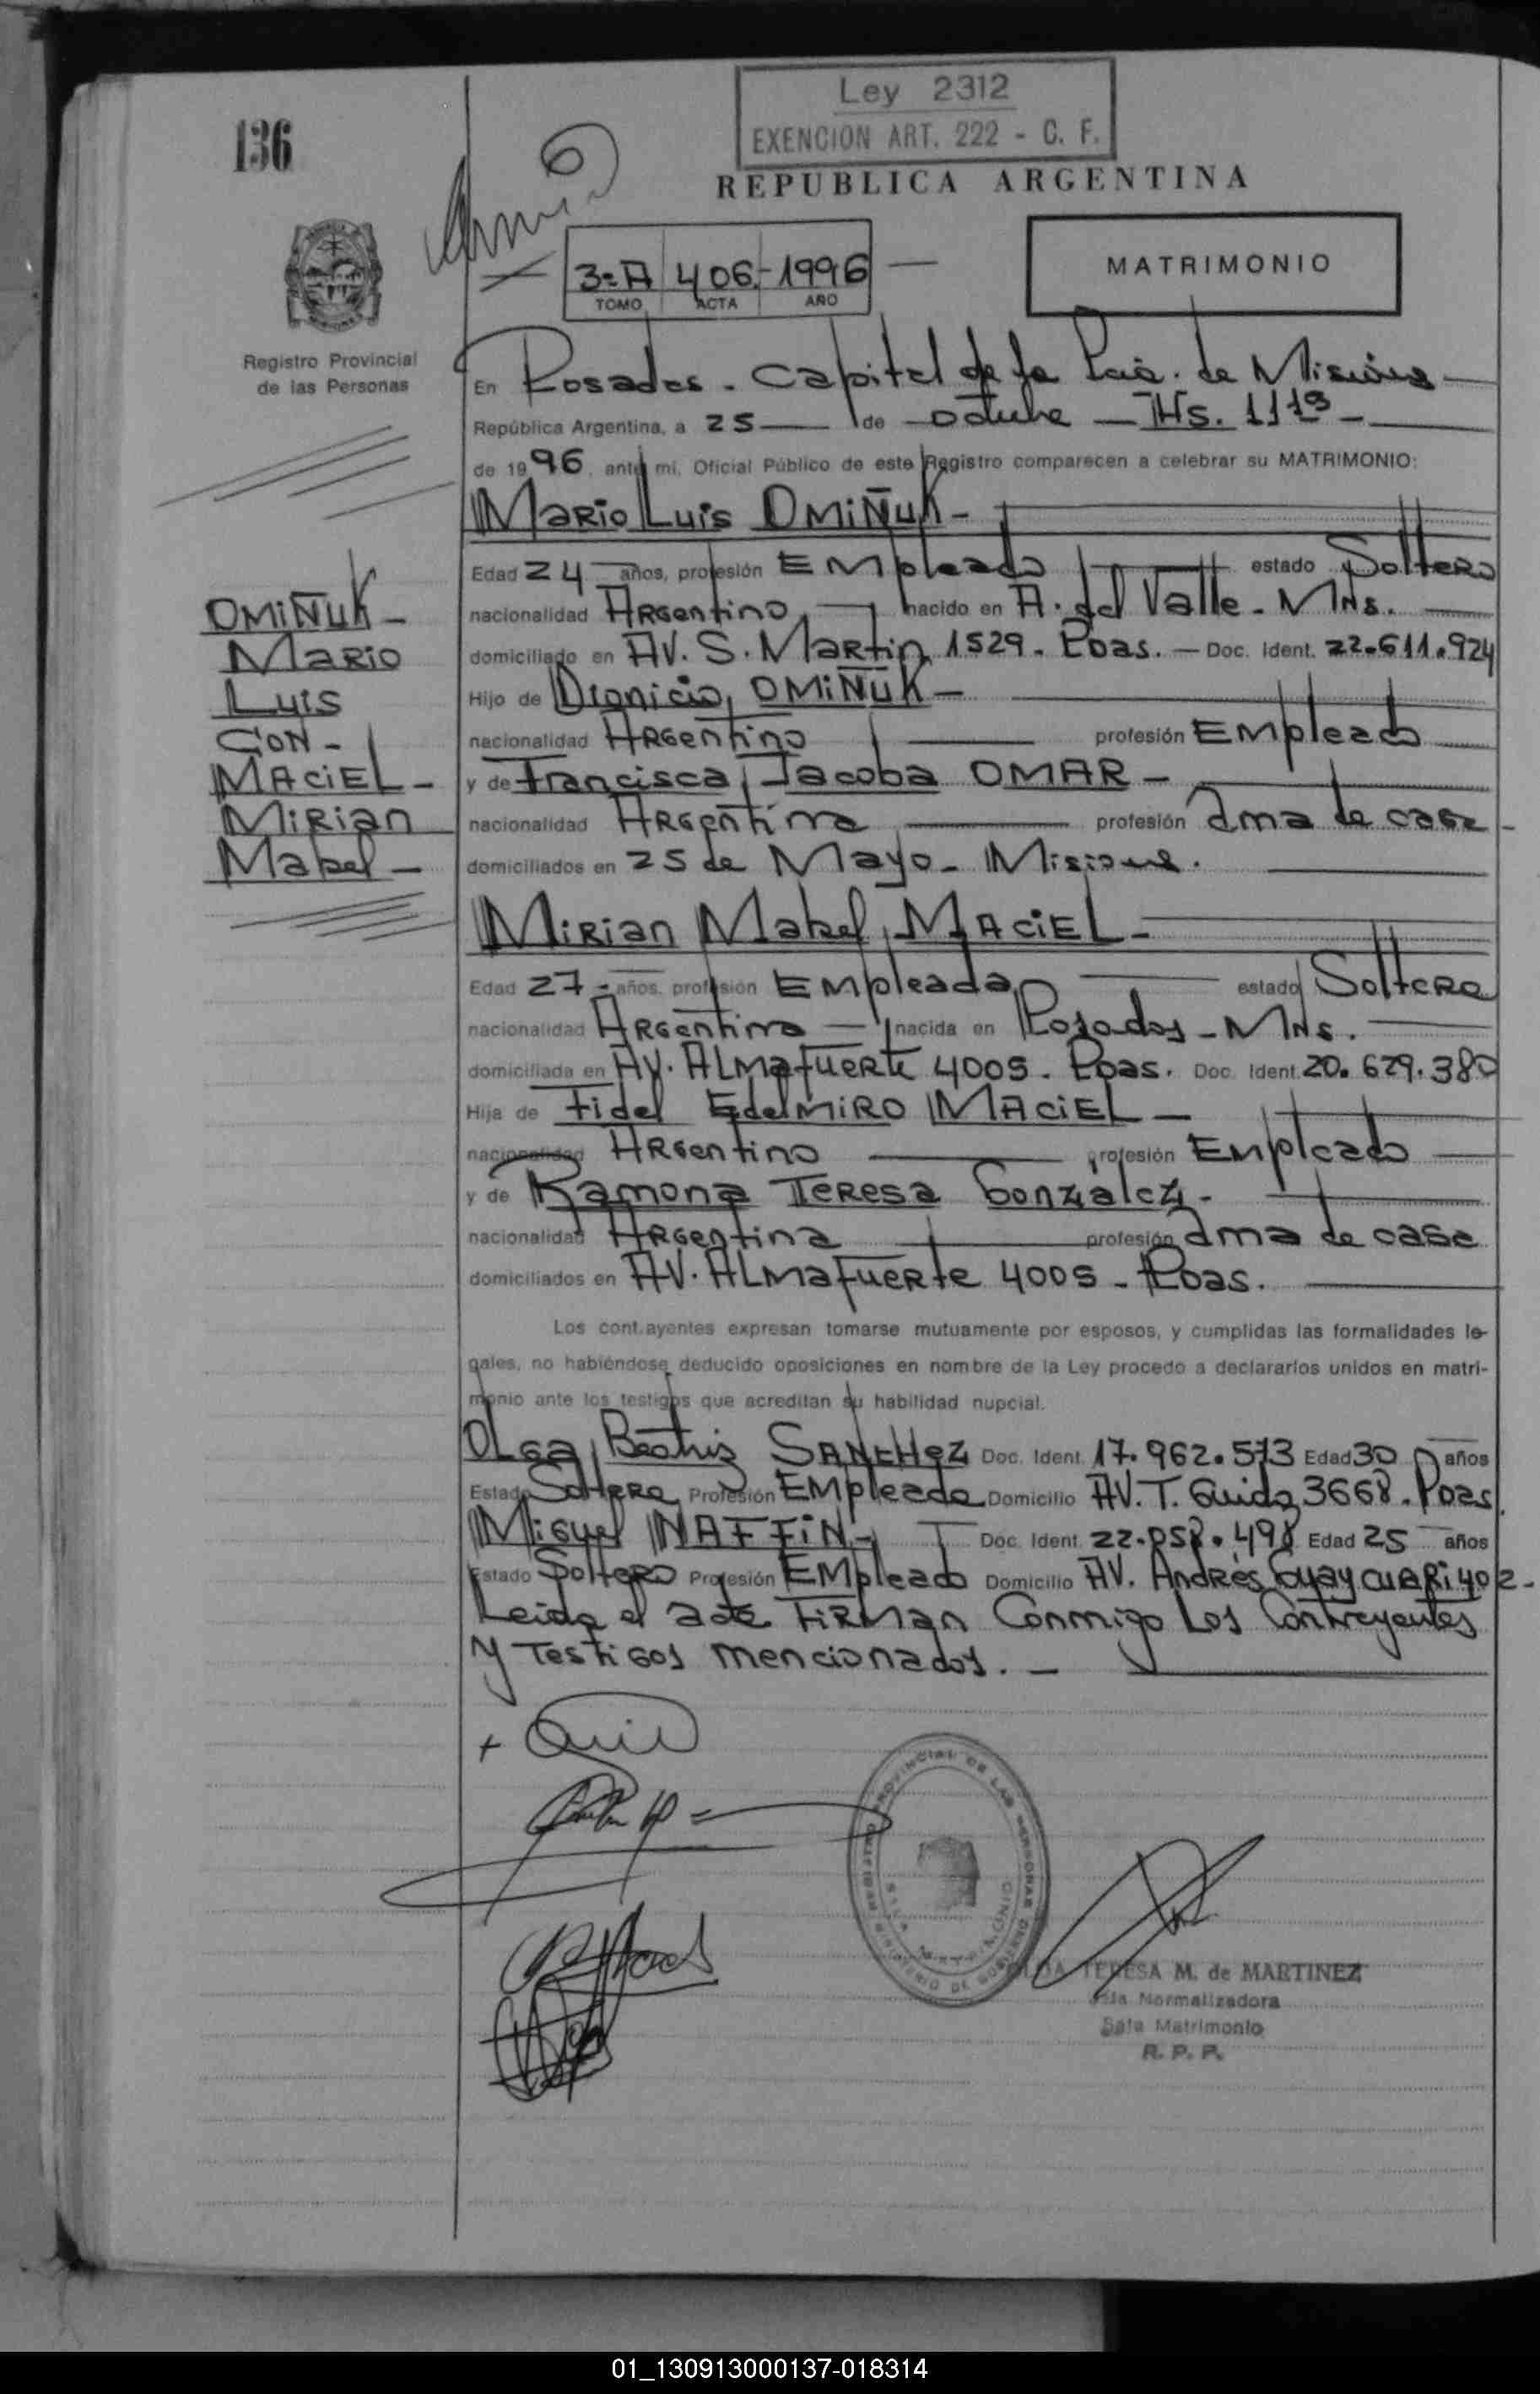 Ley 2312
EXENCION ART. 222 - C. F.
136
REPUBLICA ARGENTINA
3ºA 406- 1996
TOMO ACTA AÑO
MATRIMONIO
Registro Provincial
de las Personas
En Posadas - Capital de la Pcia. de Misiones
República Argentina, a 25 de octubre - Hs. 11
de 1996, ante mi, Oficial Público de este Registro comparecen a celebrar su MATRIMONIO:
Mario Luis OMIÑUK -
Edad 24 años, profesión EMpleado estado Soltero
nacionalidad Argentino nacido en A. del Valle - Mns.
domiciliado en AV. S. Martin 1529 - Pdas. - Doc. Ident. 22.611.924
Hijo de Dionicio OMIÑUK -
nacionalidad Argentino profesión EMpleado
y de Francisca Jacoba OMAR -
nacionalidad Argentina profesión ama de casa
domiciliados en 25 de Mayo - Misiones.
OMIÑUK -
Mario
Luis
CON -
MACIEL -
Mirian
Mabel -
Mirian Mabel MACIEL -
Edad 27 - años, profesión EMpleada estado Soltera
nacionalidad Argentina - nacida en Posadas - Mns.
domiciliada en AV. ALMAfuerte 4005 - Pdas. Doc. Ident. 20.629.380
Hija de Fidel EdelMIRO MACIEL -
nacionalidad Argentino profesión EMpleado
y de Ramona Teresa Gonzalez -
nacionalidad Argentina profesión ama de casa
domiciliados en AV. ALMAfuerte 4005 - Pdas.
Los cont.ayentes expresan tomarse mutuamente por esposos, y cumplidas las formalidades le-
gales, no habiéndose deducido oposiciones en nombre de la Ley procedo a declararlos unidos en matri-
monio ante los testigos que acreditan su habilidad nupcial.
Olga Beatriz SANCHEZ Doc. Ident. 17.962.573 Edad 30 años
Estado Soltera Profesión EMpleada Domicilio AV. T. Guido 3668. Pdas.
Miguel NAFFIN - Doc. Ident. 22.058.498 Edad 25 años
Estado Soltero Profesión EMpleado Domicilio AV. Andrés Guaycuari 402 -
Leida el acta FIRMan Conmigo Los Contrayentes
y Testigos mencionados. -
PROVINCIAL DE LAS PERSONAS
SALA MATRIMONIO
MINISTERIO DE GOBIERNO
TERESA M. de MARTINEZ
Normalizadora
Sala Matrimonio
R. P. P.
01_130913000137-018314